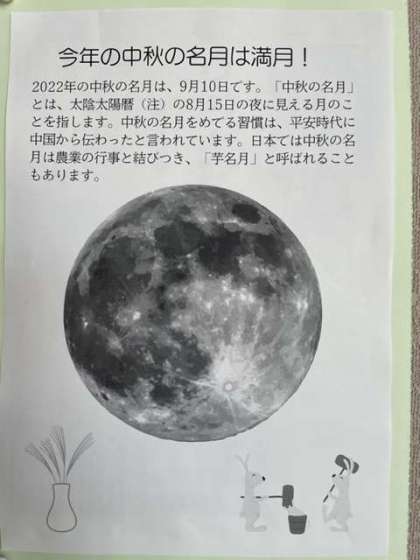 今年の中秋の名月は満月！
2022年の中秋の名月は、9月10日です。「中秋の名月」
とは、太陰太陽暦（注）の8月15日の夜に見える月のこ
とを指します。中秋の名月をめでる習慣は、平安時代に
中国から伝わったと言われています。日本では中秋の名
月は農業の行事と結びつき、「芋名月」と呼ばれること
もあります。